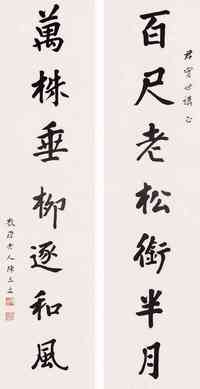 百尺老松銜半月
君實世講正
萬株垂柳逐和風
散原老人陳三立